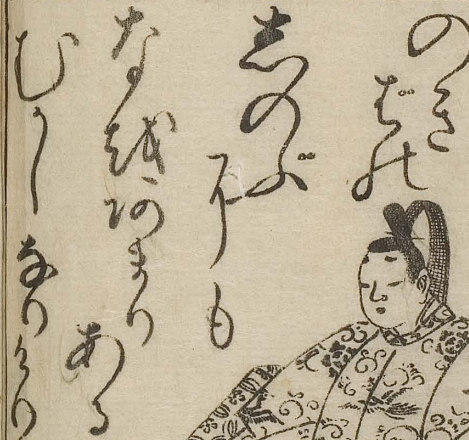 のき
ばの
しのぶ
にも
なをあまり
ある
むかしなりけり